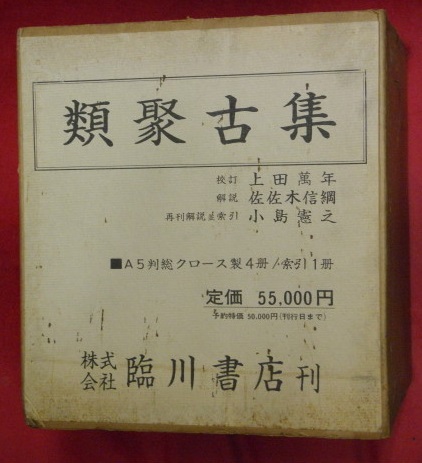 類聚古集
校訂 上田萬年
解説 佐佐木信綱
再刊解説並索引 小島憲之
■A5判総クロース製4冊/索引1冊
定価 55,000円
予約特価 50,000円(刊行日まで)
株式会社 臨川書店刊